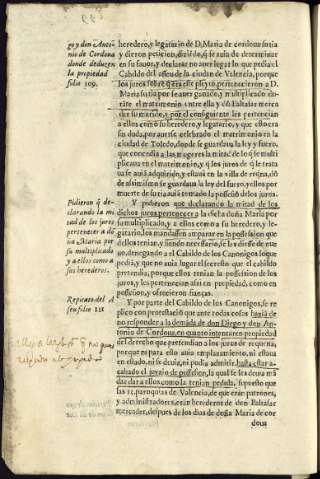 go y don Anto-
nio de Cordoua
donde deduzen
la propiedad
folio 109.
heredero, y legatario de D. Maria de cordoua su tia
y dieron peticion,
en su fauor, y declarar no auer lugar lo que pedia el
Cabildo del asseu de la ciudad de Valencia, porque
los juros sobre que era este pleyto, pertenecieron a D.
Maria su tia por
el matrimonio entre ella y dõ Baltasar merca
der su marido, y por el consiguiente les pertenecian
a ellos como sus herederos, y legatario, y que esto era
sin duda, por auerse celebrado el matrimonio en la
ciudad de Toledo, donde se guardaua la ley y fuero,
que concedia a las mugeres la mitad de lo q̃ se multi
plicaua en el matrimonio, y q̃ los juros de q̃ se trata
ua se auiã adquirido, y estauã en la villa de
de assimismo se guardaua la ley del fuero, y ellos por
muerte de su tia auiã tomado la possessiõ de los juros.
Pidieron q̃ de-
clarando la mi-
tad de los juros
pertenecer a do
ña Maria por
su multiplicado
y a ellos como a
sus herederos.
Y pidieron que declarando la mitad de los
dichos juros pertenecer a la dicha doña Maria por
su multiplicado, y a ellos como a su heredero, y le-
gatario, los mandassen amparar en la possession que
dellos tenian, y siendo necessario, se les diesse de nue
uo, denegando al Cabildo de los Canonigos lo que
pedia, y que no auia lugar el secresto que el cabildo
pretendia, porque ellos tenian la possession de los
juros, y les pertenecian assi en propiedad, como en
possession, y ofrecieron fianças.
Replicato del A
seu folio 111
Y por parte del Cabildo de los Canonigos, se re
plico con protestacion que ante todas cosas hauia de
no responder a la demãda de don Diego y don An-
tonio de Cordoua, en quanto intentaron propiedad
del derecho que pretendian a los juros de requena,
porque para ello auia emplazamiento, ni estaua
en estado, ni se deuia, ni podia admitir, hasta estar a-
cabado el juyzio de possession, la qual se les deuia mã
dar dar a ellos, como la tenian pedida, supuesto que
las 12. parroquias de Valencia, de que eran patrones,
y administradores, eran herederos de don Baltasar
mercader, despues de los dias de doña Maria de cor
doua